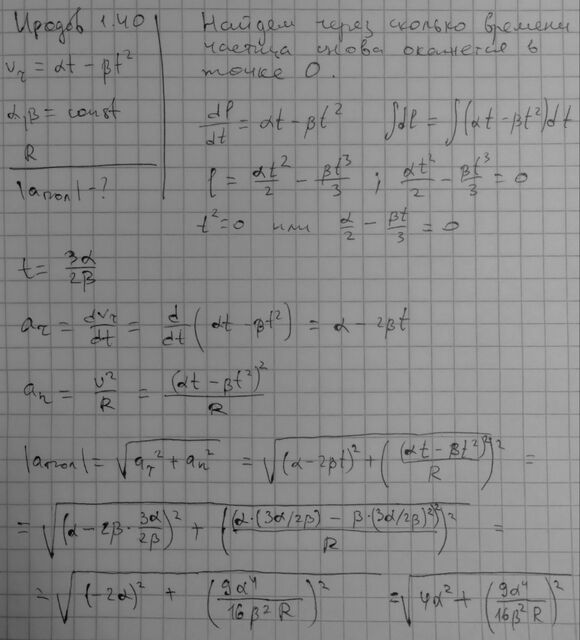 Иродов 1.40
v_τ = αt − βt²
α, β = const
R
|aпол| - ?
Найдем через сколько времени
частица снова окажется в
точке O.
dl/dt = αt − βt²   ∫dl = ∫(αt − βt²)dt
l = αt²/2 − βt³/3 ; αt²/2 − βt³/3 = 0
t² = 0 или α/2 − βt/3 = 0
t = 3α/2β
a_τ = dv_τ/dt = d/dt (αt − βt²) = α − 2βt
a_n = v²/R = (αt − βt²)²/R
|aпол| = √(a_τ² + a_n²) = √((α − 2βt)² + ((αt − βt²)²/R)²) =
= √((α − 2β · 3α/2β)² + ((α·(3α/2β) − β·(3α/2β)²)²/R)²) =
= √((−2α)² + (9α⁴/16β²R)²) = √(4α² + (9α⁴/16β²R)²)